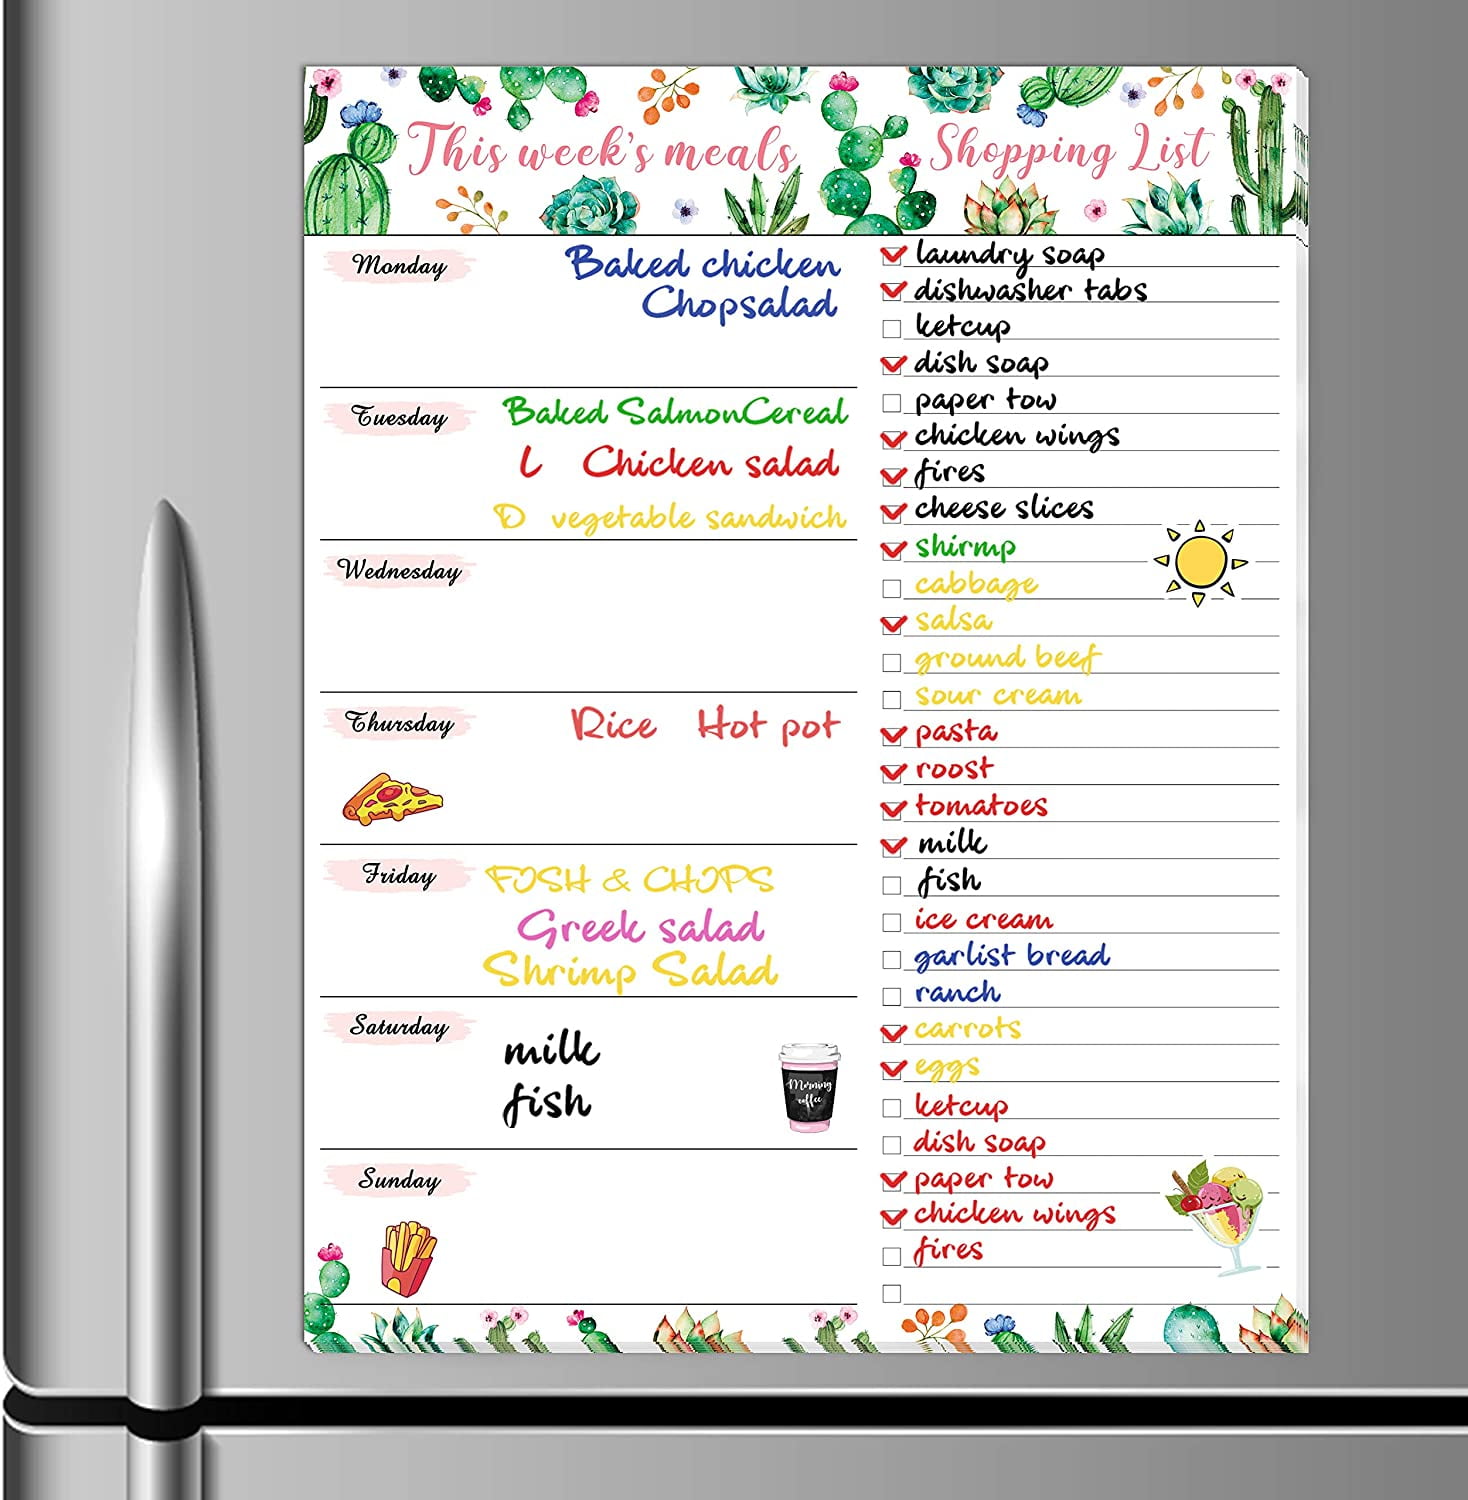 This week's meals
Monday
Baked chicken
Chopsalad
Tuesday
Baked SalmonCereal
L Chicken salad
D vegetable sandwich
Wednesday
Thursday
Rice Hot pot
Friday
FOSH & CHOPS
Greek salad
Shrimp Salad
Saturday
milk
fish
Morning
coffee
Sunday
Shopping List
laundry soap
dishwasher tabs
ketcup
dish soap
paper tow
chicken wings
fires
cheese slices
shirmp
cabbage
salsa
ground beef
sour cream
pasta
roost
tomatoes
milk
fish
ice cream
garlist bread
ranch
carrots
eggs
ketcup
dish soap
paper tow
chicken wings
fires